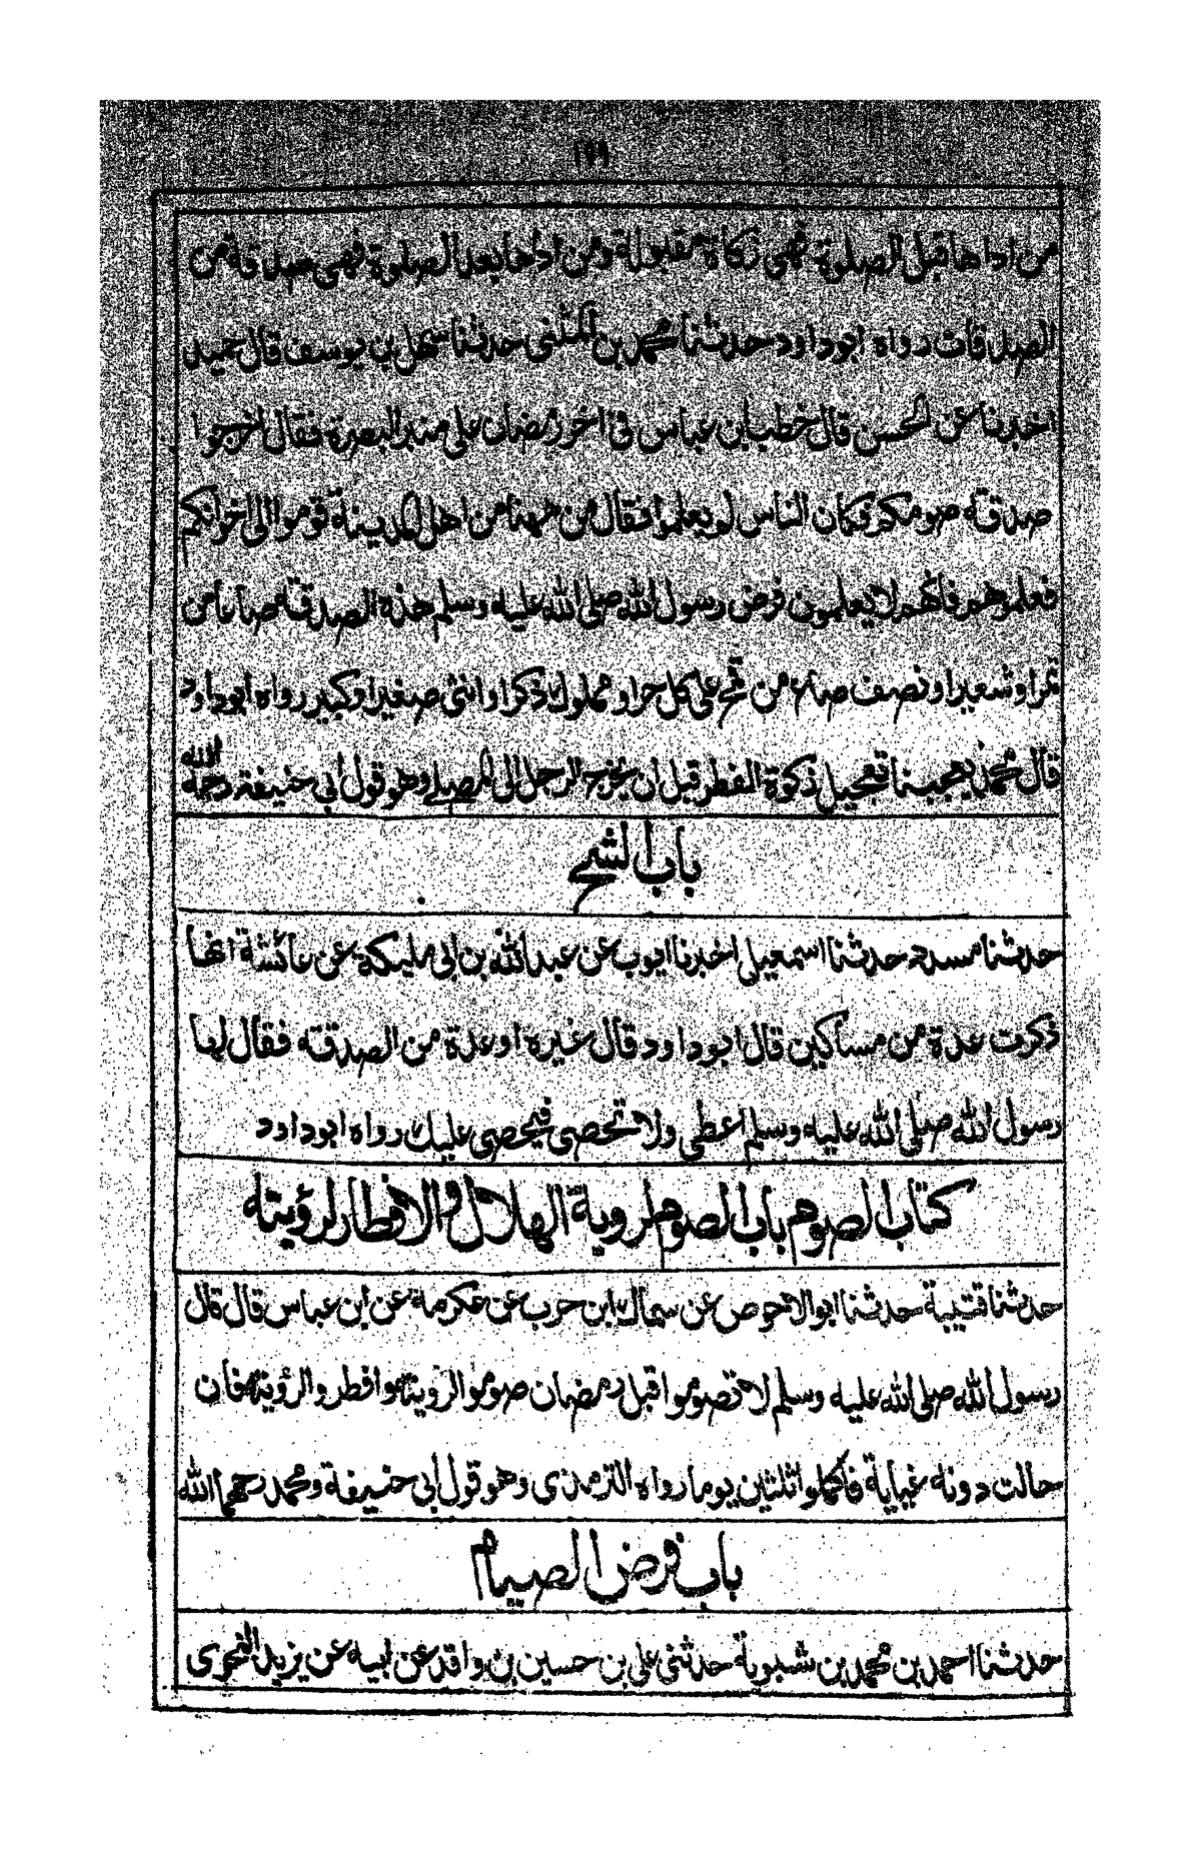 ١٧٩
من اداها قبل الصلوة فهي زكاة مقبولة ومن اداها بعد الصلوة فهي صدقة من
الصدقات رواه ابوداود حدثنا محمد بن المثنى حدثنا سهل بن يوسف قال حميد
اخبرنا عن الحسن قال خطب ابن عباس في اخر رمضان على منبر البصرة فقال اخرجوا
صدقة صومكم فكان الناس لم يعلموا فقال من ههنا من اهل المدينة قوموا الى اخوانكم
فعلموهم فانهم لا يعلمون فرض رسول الله صلى الله عليه وسلم هذه الصدقة صاعا من
تمر او شعير او نصف صاع من قمح على كل حر او مملوك ذكر او انثى صغير او كبير رواه ابوداود
قال محمد يعجبنا تعجيل زكوة الفطر قبل ان يخرج الرجل الى المصلى وهو قول ابي حنيفة رحمه الله
باب الشح
حدثنا مسدد حدثنا اسمعيل اخبرنا ايوب عن عبد الله بن ابي مليكة عن عائشة انها
ذكرت عدة من مساكين قال ابوداود قال غيره او عدة من الصدقة فقال لها
رسول الله صلى الله عليه وسلم اعطى ولا تحصى فيحصى عليك رواه ابوداود
كتاب الصوم باب الصوم لروية الهلال والافطار لرؤيته
حدثنا قتيبة حدثنا ابوالاحوص عن سماك ابن حرب عن عكرمة عن ابن عباس قال قال
رسول الله صلى الله عليه وسلم لا تصوموا قبل رمضان صوموا لرويته وافطروا لرؤيته فان
حالت دونه غيابة فاكملوا ثلثين يوما رواه الترمذى وهو قول ابي حنيفة ومحمد رحمهما الله
باب فرض الصيام
حدثنا احمد بن محمد بن شبوية حدثنى على بن حسين بن واقد عن ابيه عن يزيد النحوى